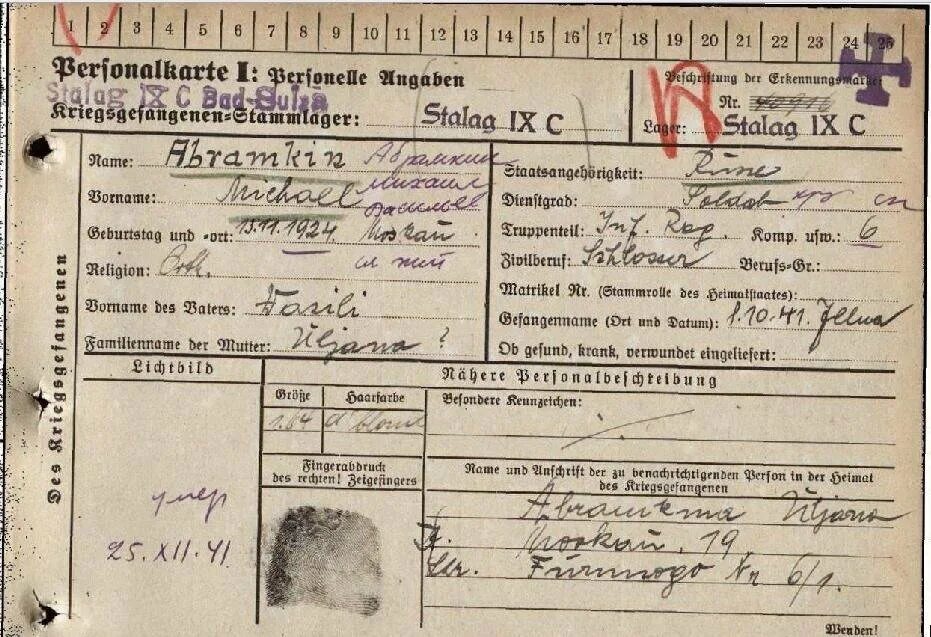 1 2 3 4 5 6 7 8 9 10 11 12 13 14 15 16 17 18 19 20 21 22 23 24 25
Personalkarte I: Personelle Angaben
Stalag IX C Bad-Sulza
Kriegsgefangenen-Stammlager: Stalag IX C
Beschriftung der Erkennungsmarke
Nr.
Lager: Stalag IX C
Des Kriegsgefangenen
Name: Abramkin Абрамкин
Vorname: Michael Михаил
Geburtstag und -ort: 15.11.1924 Moskau
Religion: Orth.
Vorname des Vaters: Wasili
Familienname der Mutter: Uljana ?
Staatsangehörigkeit: Russe
Dienstgrad: Soldat
Truppenteil: Inf. Reg. Komp. usw.: 6
Zivilberuf: Schlosser Berufs-Gr.:
Matrikel Nr. (Stammrolle des Heimatstaates):
Gefangenname (Ort und Datum): 1.10.41. Jelna
Ob gesund, krank, verwundet eingeliefert:
Lichtbild
умер
25.XII.41
Nähere Personalbeschreibung
Größe Haarfarbe
1.64 d'blond
Besondere Kennzeichen:
Fingerabdruck
des rechten! Zeigefingers
Name und Anschrift der zu benachrichtigenden Person in der Heimat
des Kriegsgefangenen
Abramkina Uljana
Moskau. 19
Nr 6/1.
Wenden!